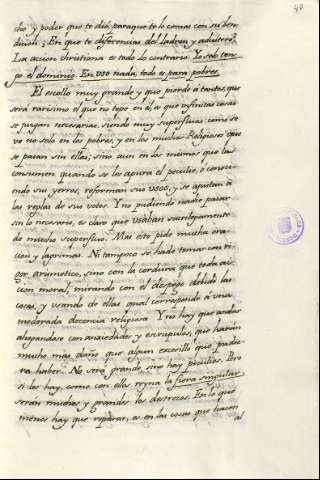 49
cho, y poder que te dió, paraque te lo comas con su ben
dicion. En que te diferencias del ladron, y adultero?
La accion christiana es todo lo contrario. Yo solo ten-
go el dominio. En uso nada, todo es para pobres.
El escollo muy grande y que pierde á tantos, que
será rarisimo el que no tope en él, es que infinitas cosas
se juzgan necesarias, siendo muy superfluas: como se
ve no solo en los pobres, y en los muchos Religiosos que
se pasan sin ellas; sino aun en los mesmos que las
consumen quando se les apura el peculio, ó conoci-
endo sus yerros, reforman sus usos, y se ajustan á
las reglas de sus votos. Y no pudiendo nadie pasar
sin lo necesario, es claro que usaban
de mucho superfluo. Mas esto pide mucha ora-
cion y lagrimas. Ni tampoco se hade tomar con ri-
gor arismetico, sino con la cordura que toda ac-
cion moral, mirando con el despego debido las
cosas, y usando de ellas qual corresponde á una
moderada decencia religiosa. Y no hay que andar
ahogandose con ansiedades y escrupulos, que harán
mucho mas daño que algun excesillo que pudie-
ra haber. No será grande, sino hay peculios. Pero
si los hay, como con ellos reyna la fiera singular
serán muchos y grandes los destrozos. En lo que
menos hay que reparar, es en las cosas que hacen
al